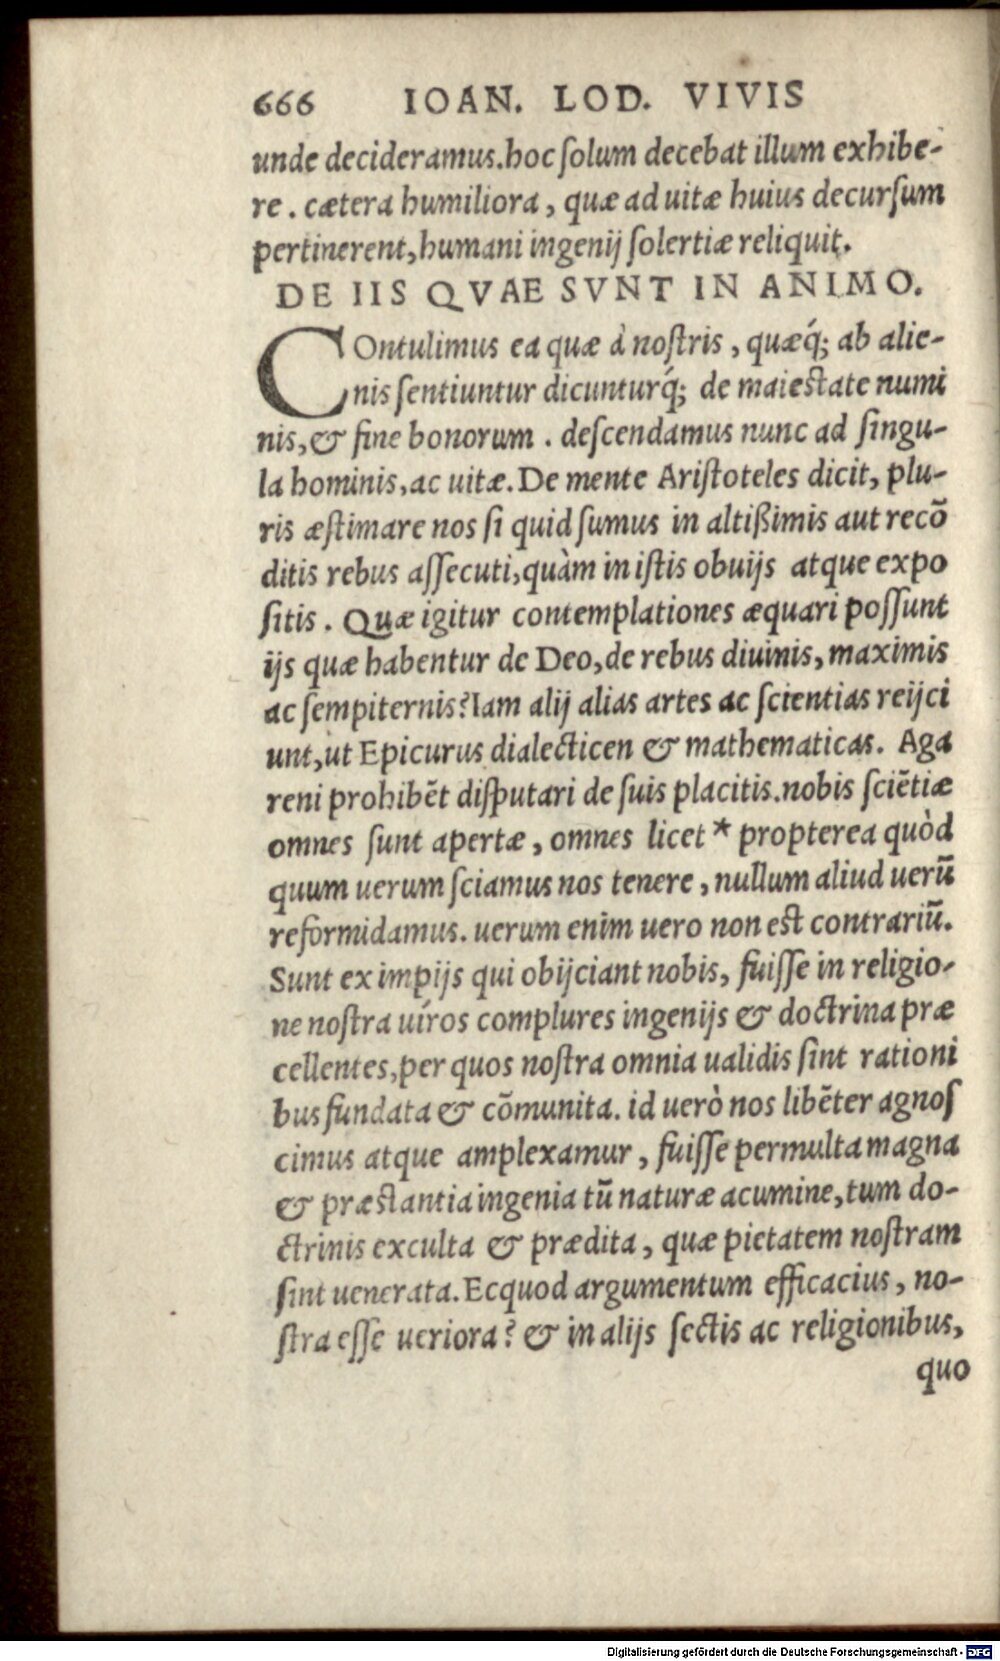 666 IOAN. LOD. VIVIS
unde decideramus.hoc ſolum decebat illum exhibe-
re. cætera humiliora, quæ ad uitæ huius decurſum
pertinerent,humani ingenij ſolertiæ reliquit.
DE IIS QVAE SVNT IN ANIMO.
COntulimus ea quæ à noſtris, quæq́; ab alie-
nis ſentiuntur dicunturq́; de maieſtate numi
nis,& fine bonorum. deſcendamus nunc ad ſingu-
la hominis,ac uitæ. De mente Ariſtoteles dicit, plu-
ris æſtimare nos ſi quid ſumus in altißimis aut recō
ditis rebus aſſecuti,quàm in iſtis obuijs atque expo
ſitis. Quæ igitur contemplationes æquari poſſunt
ijs quæ habentur de Deo,de rebus diuinis,maximis
ac ſempiternis? Iam alij alias artes ac ſcientias reijci
unt,ut Epicurus dialecticen & mathematicas. Aga
reni prohibēt diſputari de ſuis placitis.nobis ſciētiæ
omnes ſunt apertæ, omnes licet * propterea quòd
quum uerum ſciamus nos tenere, nullum aliud uerū
reformidamus. uerum enim uero non eſt contrariū.
Sunt ex impijs qui obijciant nobis, fuiſſe in religio-
ne noſtra uíros complures ingenijs & doctrina præ
cellentes,per quos noſtra omnia ualidis ſint rationi
bus fundata & cōmunita. id uerò nos libēter agnoſ
cimus atque amplexamur, fuiſſe permulta magna
& præſtantia ingenia tū naturæ acumine,tum do-
ctrinis exculta & prædita, quæ pietatem noſtram
ſint uenerata. Ecquod argumentum efficacius, no-
ſtra eſſe ueriora? & in alijs ſectis ac religionibus,
quo
Digitalisierung gefördert durch die Deutsche Forschungsgemeinschaft - DFG